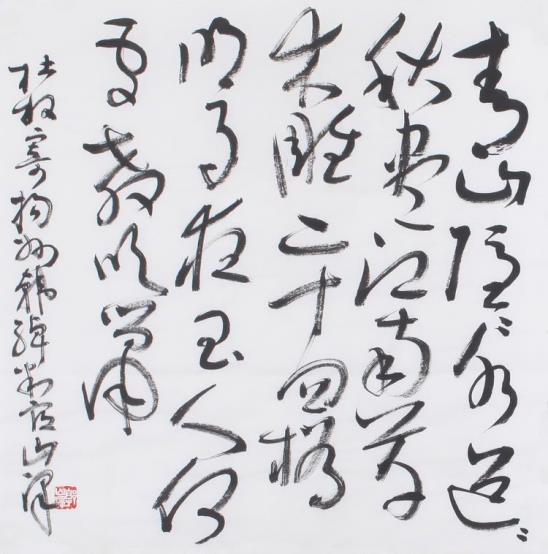 青山隐〻水迢〻
秋尽江南草
未雕二十四桥
明月夜玉人何
处教吹箫
杜牧寄扬州韩绰判官山